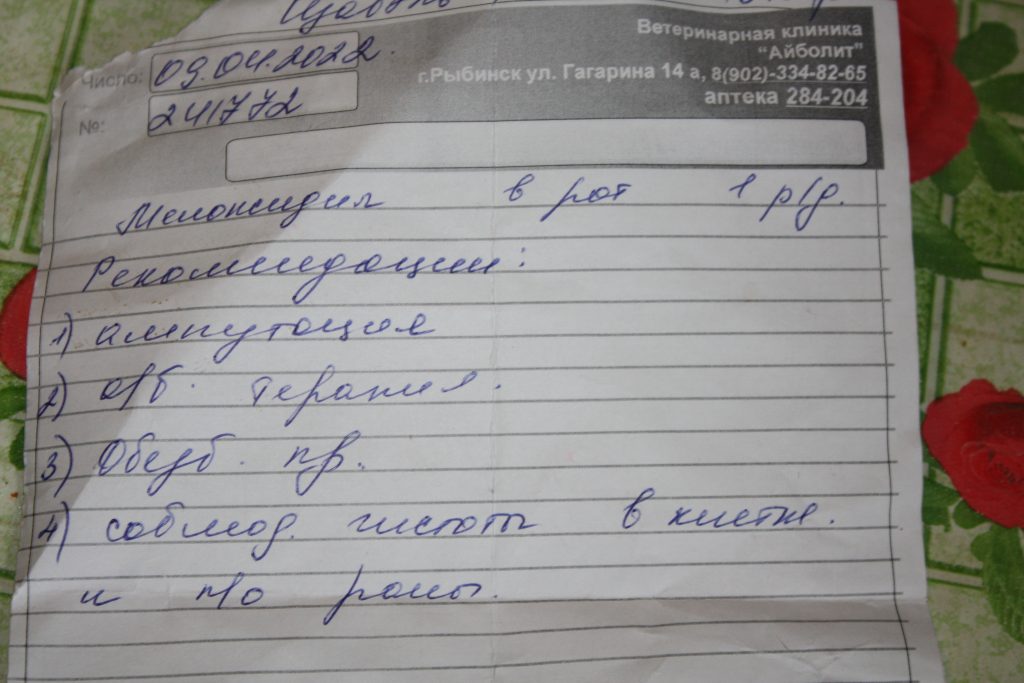 Ветеринарная клиника
"Айболит"
Число: 09.04.2022.
г.Рыбинск ул. Гагарина 14 а, 8(902)-334-82-65
№: 241772
аптека 284-204
Мелоксидил в рот 1 р/д.
Рекомендации:
1) ампутация
2) а/б. терапия.
3) Обезб. пр.
4) соблюд. чистоты в клетке.
и п/о раны.